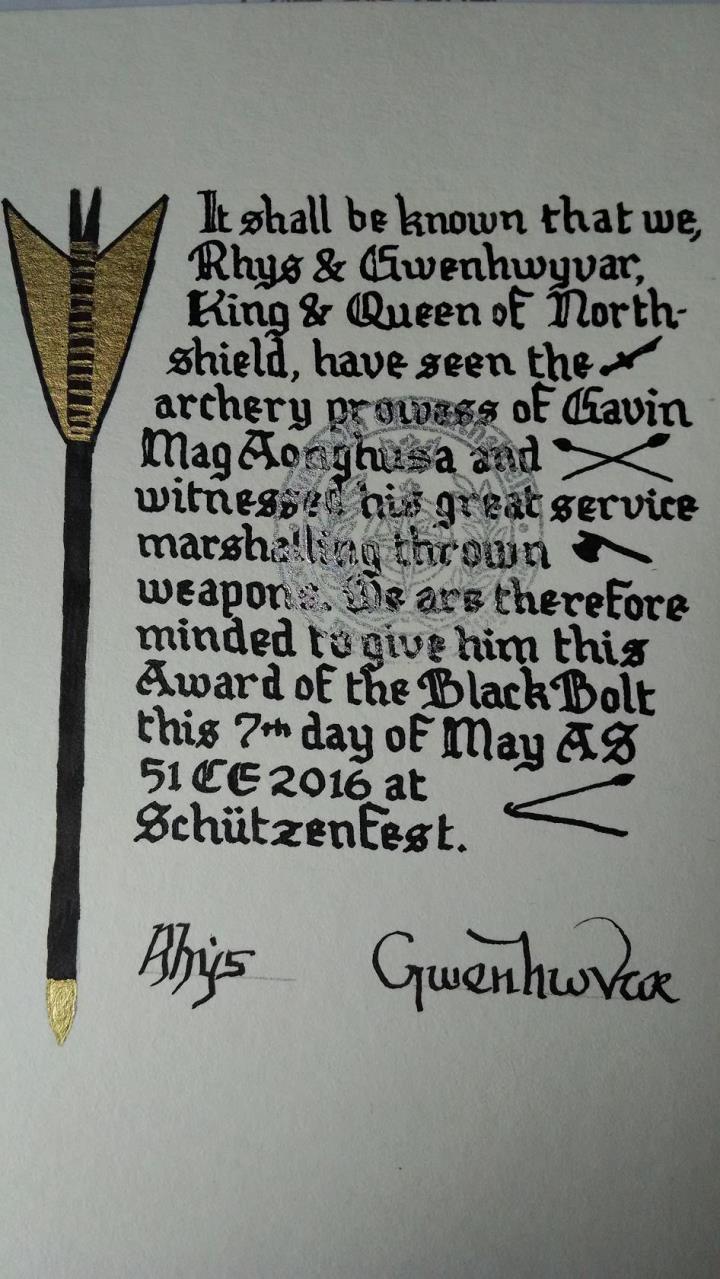 It shall be known that we,
Rhys & Gwenhwyvar,
King & Queen of North-
shield, have seen the
archery prowess of Gavin
Mag Aonghusa and
witnessed his great service
marshalling thrown
weapons. We are therefore
minded to give him this
Award of the Black Bolt
this 7th day of May AS
51 CE 2016 at
Schützenfest.
Rhys Gwenhwvar